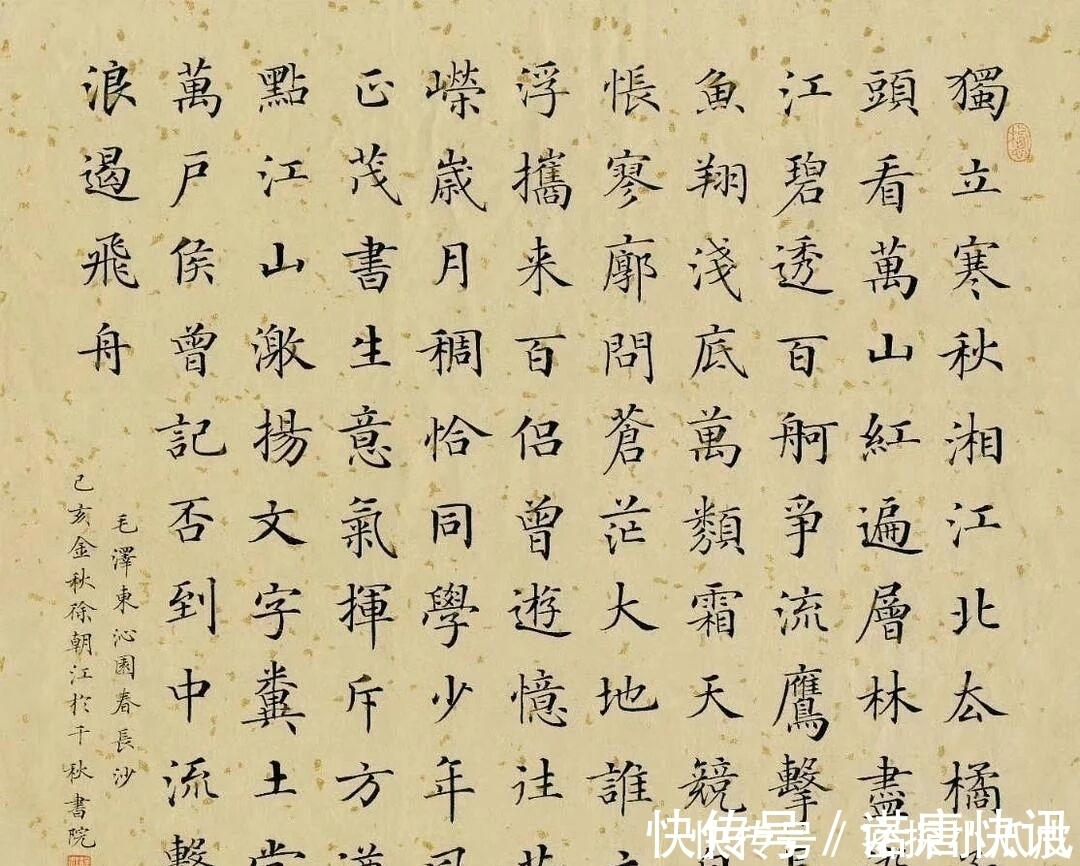 獨立寒秋湘江北去橘
頭看萬山紅遍層林盡
江碧透百舸爭流鷹擊
魚翔淺底萬類霜天競
悵寥廓問蒼茫大地誰
浮攜来百侶曾遊憶往
嶸歲月稠恰同學少年
正茂書生意氣揮斥方
點江山激揚文字糞土
萬戶侯曾記否到中流
浪遏飛舟
毛澤東沁園春長沙
己亥金秋徐朝江於千秋書院
快传号 / 快讯